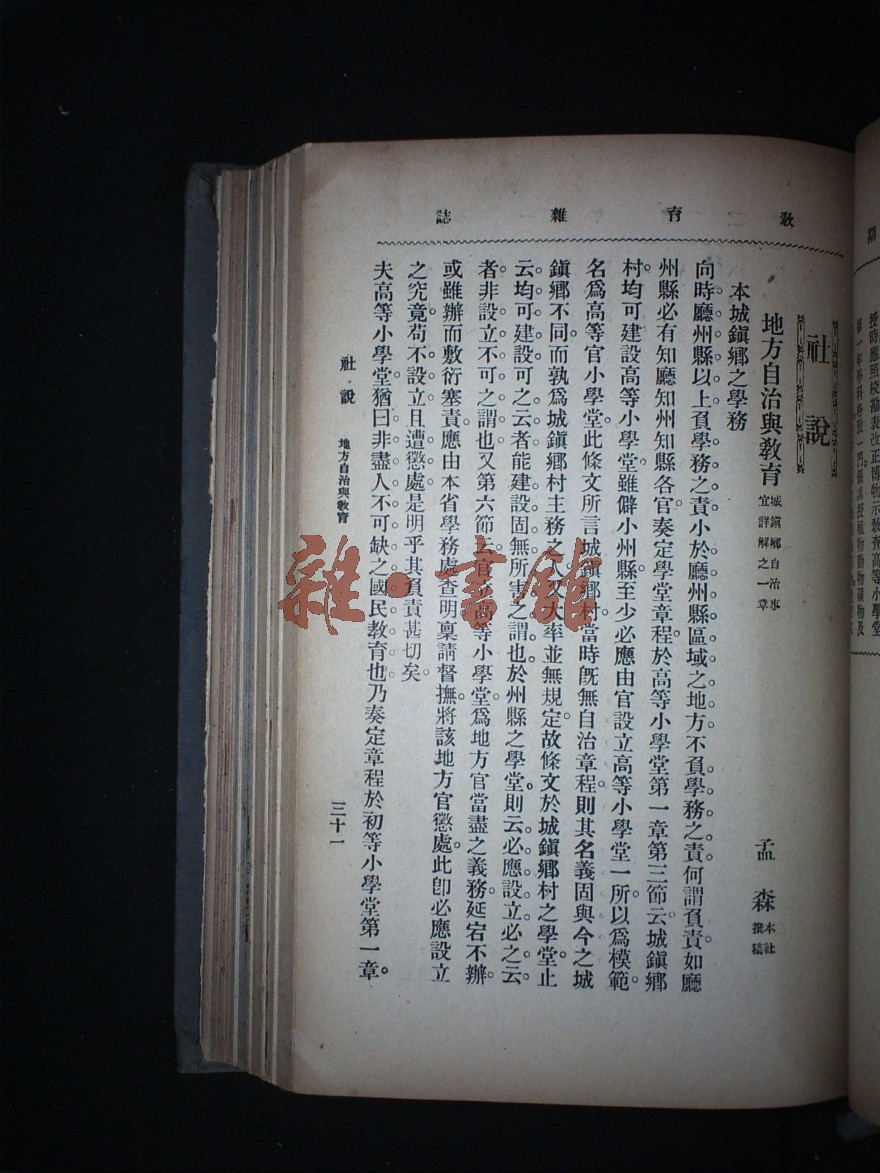 教育雜誌
社說
地方自治與教育 城鎮鄉自治事宜詳解之一章
孟森 本社撰稿
本城鎮鄉之學務
向時廳州縣以上負學務之責小於廳州縣區域之地方不負學務之責何謂負責如廳
州縣必有知廳知州知縣各官奏定學堂章程於高等小學堂第一章第三節云城鎮鄉
村均可建設高等小學堂雖僻小州縣至少必應由官設立高等小學堂一所以爲模範
名爲高等官小學堂此條文所言城鎮鄉村當時旣無自治章程則其名義固與今之城
鎮鄉不同而孰爲城鎮鄉村主務之人又大率並無規定故條文於城鎮鄉村之學堂止
云均可建設可之云者能建設固無所害之謂也於州縣之學堂則云必應設立必之云
者非設立不可之謂也又第六節云官立高等小學堂爲地方官當盡之義務延宕不辦
或雖辦而敷衍塞責應由本省學務處查明稟請督撫將該地方官懲處此卽必應設立
之究竟苟不設立且遭懲處是明乎其負責甚切矣
夫高等小學堂猶曰非盡人不可缺之國民教育也乃奏定章程於初等小學堂第一章
社說 地方自治與教育
三十一
雜·書館
期
授時應照校勘表改正博物示教查高等小學堂